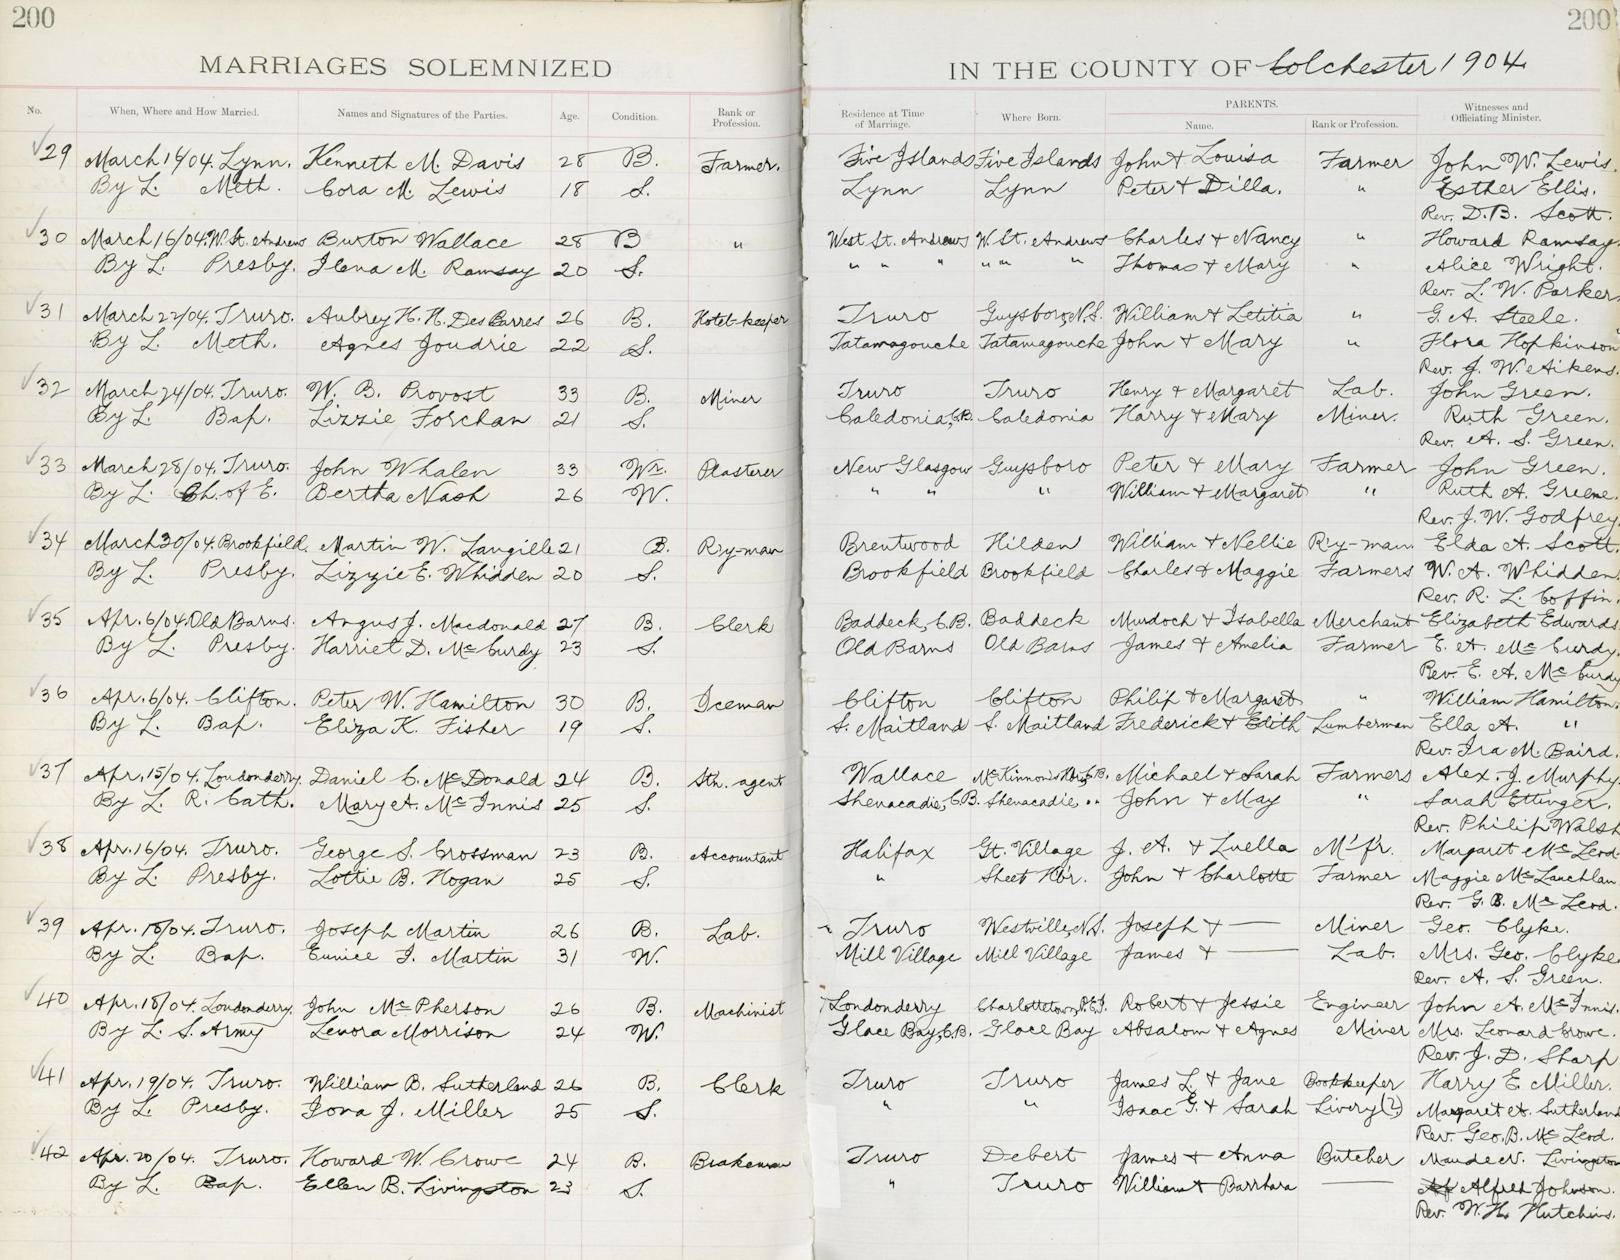 200
200
MARRIAGES SOLEMNIZED
IN THE COUNTY OF Colchester 1904
No. When, Where and How Married. Names and Signatures of the Parties. Age. Condition. Rank or Profession. Residence at Time of Marriage. Where Born. PARENTS. Name. Rank or Profession. Witnesses and Officiating Minister.
29 March 14/04. Lynn. Kenneth M. Davis 28 B. Farmer. Five Islands Five Islands John & Louisa Farmer John W. Lewis.
By L. Meth. Cora M. Lewis 18 S. Lynn Lynn Peter & Dilla. " Esther Ellis.
Rev. D.B. Scott.
30 March 16/04. W. St. Andrews Burton Wallace 28 B " West St. Andrews W. St. Andrews Charles & Nancy " Howard Ramsay.
By L. Presby. Ilena M. Ramsay 20 S. " " " " " " Thomas & Mary " Alice Wright.
Rev. L. W. Parker.
31 March 22/04. Truro. Aubrey H. H. DesBarres 26 B. Hotel-keeper Truro Guysboro, N.S. William & Letitia " G. A. Steele.
By L. Meth. Agnes Joudrie 22 S. Tatamagouche Tatamagouche John & Mary " Flora Hopkinson
Rev. J. W. Aikens.
32 March 24/04. Truro. W. B. Provost 33 B. Miner Truro Truro Henry & Margaret Lab. John Green.
By L. Bap. Lizzie Forchan 21 S. Caledonia, C.B. Caledonia Harry & Mary Miner. Ruth Green.
Rev. A. S. Green.
33 March 28/04. Truro. John Whalen 33 Wr. Plasterer New Glasgow Guysboro Peter & Mary Farmer John Green.
By L. Ch. of E. Bertha Nash 26 W. " " " William & Margaret " Ruth A. Greene.
Rev. J. W. Godfrey.
34 March 30/04. Brookfield. Martin W. Langille 21 B. R'y-man Brentwood Hilden William & Nellie R'y-man Elda A. Scott.
By L. Presby. Lizzie E. Whidden 20 S. Brookfield Brookfield Charles & Maggie Farmers W. A. Whidden
Rev. R. L. Coffin.
35 Apr. 6/04. Old Barns. Angus J. Macdonald 27 B. Clerk Baddeck, C.B. Baddeck Murdoch & Isabella Merchant Elizabeth Edwards
By L. Presby. Harriet D. McCurdy 23 S. Old Barns Old Barns James & Amelia Farmer E. A. McCurdy.
Rev. E. A. McCurdy
36 Apr. 6/04. Clifton. Peter W. Hamilton 30 B. Iceman Clifton Clifton Philip & Margaret " William Hamilton.
By L. Bap. Eliza K. Fisher 19 S. S. Maitland S. Maitland Frederick & Edith Lumberman Ella A. "
Rev. Ira M. Baird.
37 Apr. 15/04. Londonderry. Daniel C. McDonald 24 B. Stn. agent Wallace McKinnons Hbr, C.B. Michael & Sarah Farmers Alex. J. Murphy.
By L. R. Cath. Mary A. McInnis 25 S. Shenacadie, C.B. Shenacadie, " John & May " Sarah Ettinger.
Rev. Philip Walsh
38 Apr. 16/04. Truro. George S. Crossman 23 B. Accountant Halifax Gt. Village J. A. & Luella M'f'r. Margaret McLeod.
By L. Presby. Lottie B. Hogan 25 S. " Sheet Hbr. John & Charlotte Farmer Maggie McLauchlan
Rev. G. B. McLeod.
39 Apr. 18/04. Truro. Joseph Martin 26 B. Lab. Truro Westville, N.S. Joseph & — Miner Geo. Clyke.
By L. Bap. Eunice J. Martin 31 W. Mill Village Mill Village James & — Lab. Mrs. Geo. Clyke
Rev. A. S. Green.
40 Apr. 18/04. Londonderry. John McPherson 26 B. Machinist Londonderry Charlottetown, P.E.I. Robert & Jessie Engineer John A. McInnis.
By L. S. Army Lenora Morrison 24 W. Glace Bay, C.B. Glace Bay Absalom & Agnes Miner Mrs. Leonard Crowe.
Rev. J. D. Sharp
41 Apr. 19/04. Truro. William B. Sutherland 26 B. Clerk Truro Truro James L. & Jane Bookkeeper Harry E. Miller.
By L. Presby. Iona J. Miller 25 S. " " Isaac G. & Sarah Livery(?) Margaret A. Sutherland
Rev. Geo. B. McLeod.
42 Apr. 20/04. Truro. Howard W. Crowe 24 B. Brakeman Truro Debert James & Anna Butcher Maude N. Livingston
By L. Bap. Ellen B. Livingston 23 S. " Truro William & Barbara — Alfred Johnson.
Rev. W. H. Hutchins.